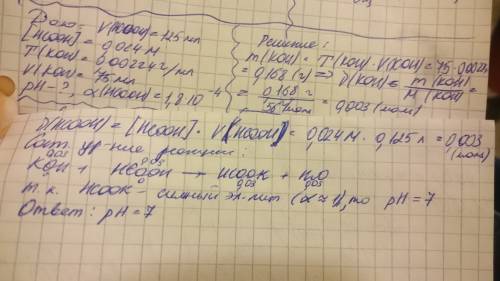 Дано: V(HCOOH) = 125 мл
[HCOOH] = 0,024 M
T(KOH) = 0,00224 г/мл
V(KOH) = 75 мл
pH - ?, α(HCOOH) = 1,8·10⁻⁴
Решение:
m(KOH) = T(KOH)·V(KOH) = 75·0,00224
= 0,168 (г) => ν(KOH) = m(KOH)/M(KOH) =
= 0,168 г / 56 г/моль = 0,003 (моль)
ν(HCOOH) = [HCOOH]·V(HCOOH) = 0,024 M · 0,125 л = 0,003 (моль)
Сост. ур-ние реакции:
0,03 0,03 0,03 0,03
KOH + HCOOH → HCOOK + H₂O
т.к. HCOOK - сильный эл-лит (α ≈ 1), то pH = 7
Ответ: pH = 7